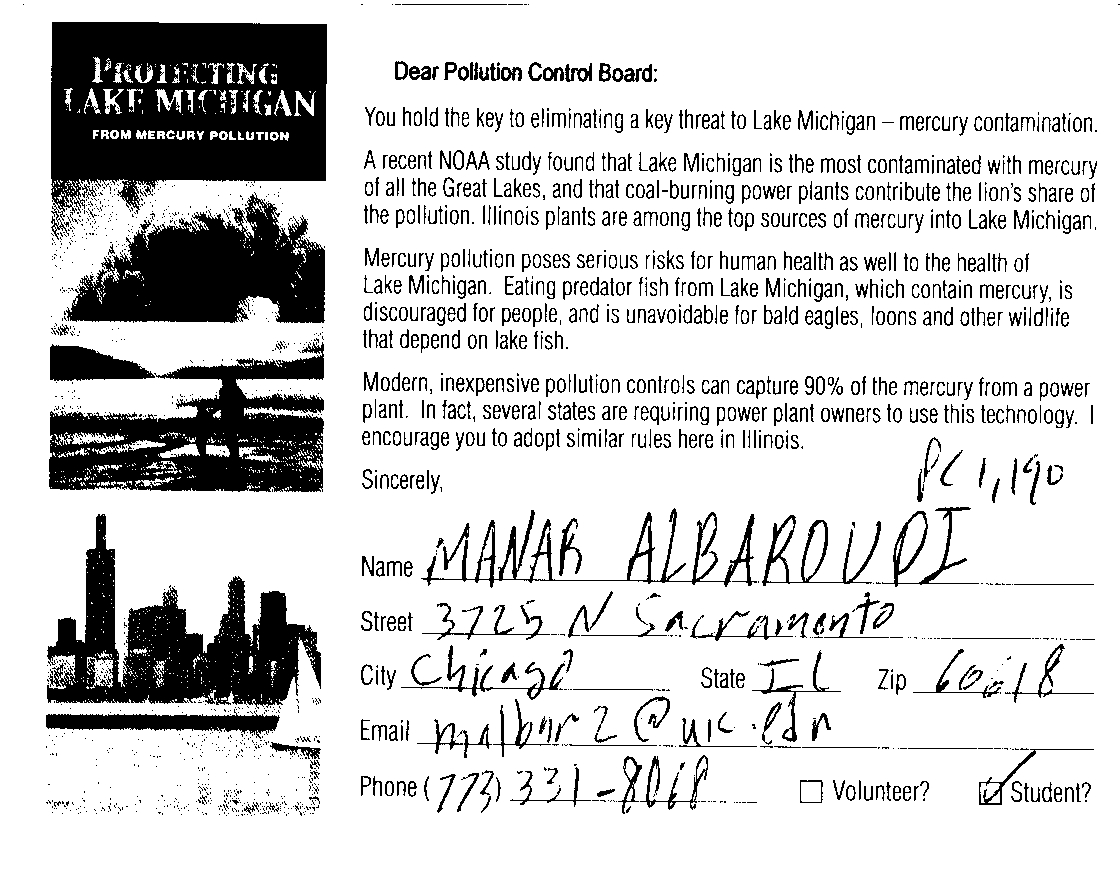 PROTECTING
LAKE MICHIGAN
FROM MERCURY POLLUTION
Dear Pollution Control Board:
You hold the key to eliminating a key threat to Lake Michigan – mercury contamination.
A recent NOAA study found that Lake Michigan is the most contaminated with mercury
of all the Great Lakes, and that coal-burning power plants contribute the lion's share of
the pollution. Illinois plants are among the top sources of mercury into Lake Michigan.
Mercury pollution poses serious risks for human health as well to the health of
Lake Michigan. Eating predator fish from Lake Michigan, which contain mercury, is
discouraged for people, and is unavoidable for bald eagles, loons and other wildlife
that depend on lake fish.
Modern, inexpensive pollution controls can capture 90% of the mercury from a power
plant. In fact, several states are requiring power plant owners to use this technology. I
encourage you to adopt similar rules here in Illinois.
Sincerely,
PC 1,190
Name MANAR ALBAROUDI
Street 3725 N Sacramento
City Chicago State IL Zip 60618
Email malbar2@uic.edu
Phone (773) 331-8068 Volunteer? Student?